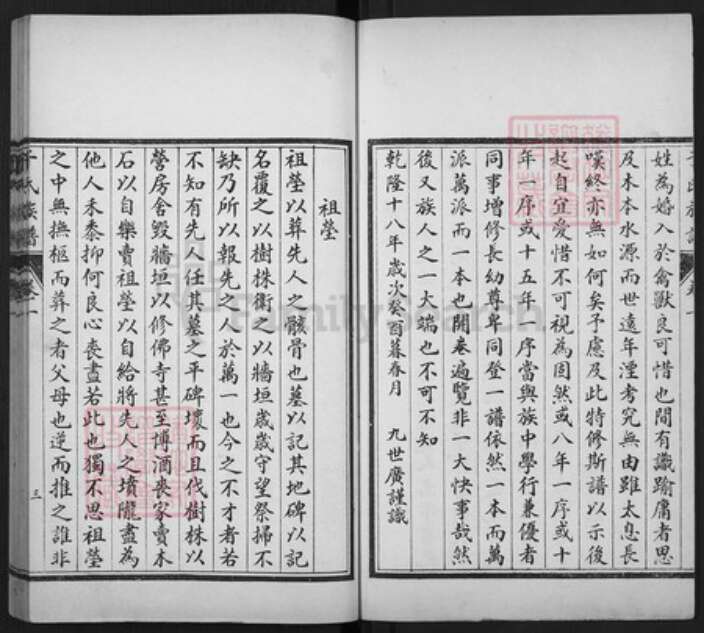 姓為婚入於禽獸良可惜也間有識踰庸者思
及木本水源而世遠年湮考究無由雖太息長
嘆終亦無如何矣予慮及此特修斯譜以示後
起自宜愛惜不可視為固然或八年一序或十
年一序或十五年一序當與族中學行兼優者
同事增修長幼尊卑同登一譜依然一本而萬
派萬派而一本也開卷遍覽非一大快事哉然
後又族人之一大端也不可不知
乾隆十八年歲次癸酉暮春月 九世廣謹識
祖塋
祖塋以葬先人之骸骨也墓以記其地碑以記
名覆之以樹株衛之以牆垣歲歲守望祭掃不
缺乃所以報先之人於萬一也今之不才者若
不知有先人任其墓之平碑壞而且伐樹株以
營房舍毀牆垣以修佛寺甚至博酒喪家賣木
石以自樂賣祖塋以自給將先人之墳隴盡為
他人禾黍抑何良心喪盡若此也獨不思祖塋
之中無撫柩而葬之者父母也逆而推之誰非
于氏族譜 卷一 三
FamilySearch